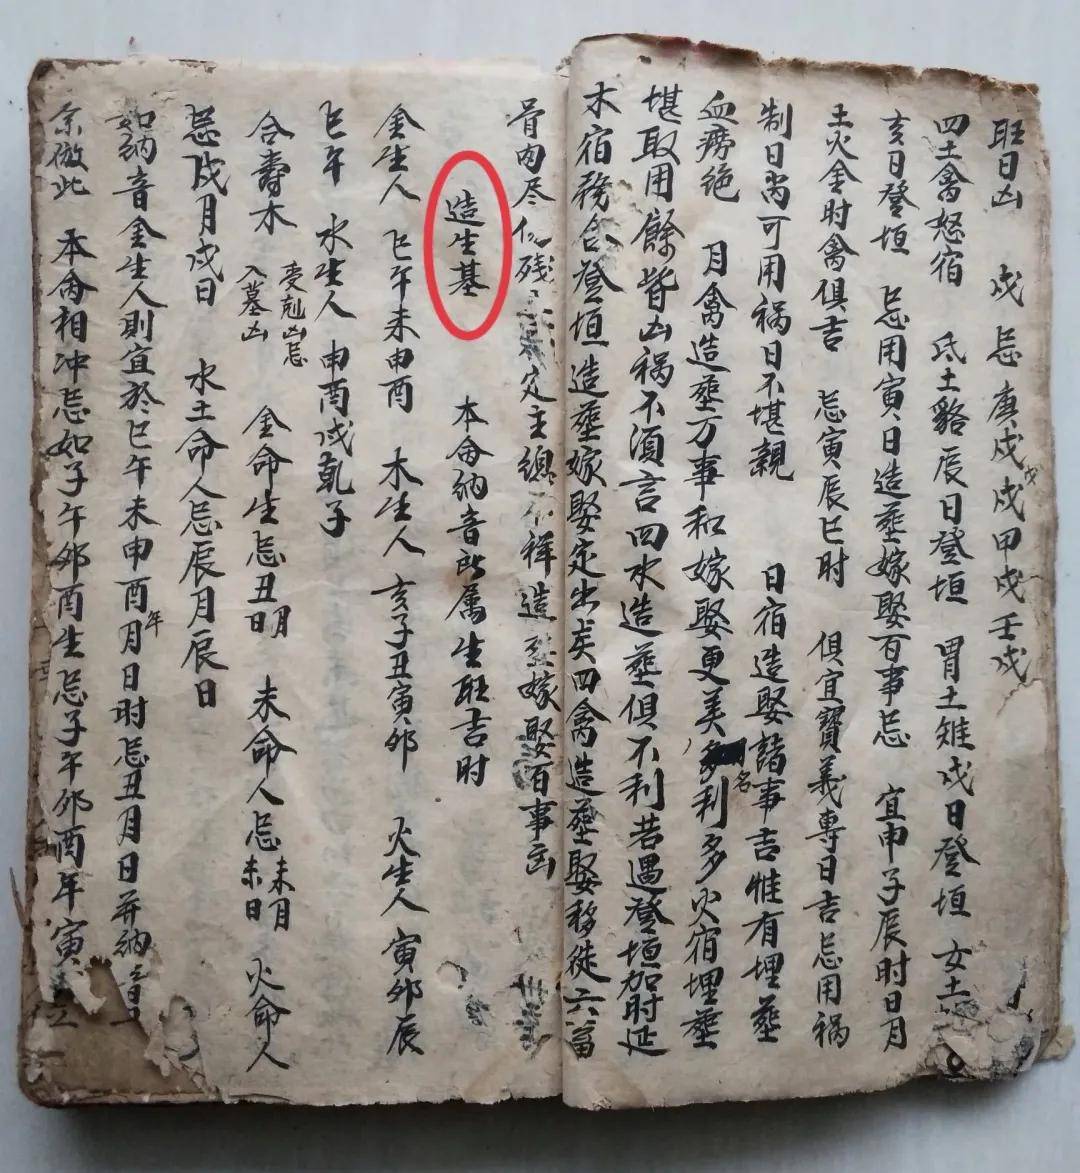 旺日凶 戊忌庚戍戊戍甲戍壬戍
四土禽怒宿 氐土貉辰日登垣 胃土雉戍日登垣 女土
亥日登垣 忌用寅日造葬嫁娶百事忌 宜申子辰时日月
土火金时禽俱吉 忌寅辰巳时 俱宜寳義專日吉忌用禍
制日尚可用禍日不堪親 日宿造娶諸事吉惟有埋葬
血癆绝 月禽造葬万事和嫁娶更美名利多火宿埋葬
堪取用餘皆凶祸不須言四水造葬俱不利若遇登垣加时延
木宿務合登垣造葬嫁娶定出 四禽造葬娶移徙六畜
骨肉尽 残 定主總不祥造葬嫁娶百事凶
造生基 本命纳音所属生旺吉时
金生人 巳午未申酉 木生人 亥子丑寅夘 火生人 寅夘辰
巳午 水生人 申酉戍亁子
合壽木 受剋凶忌入墓凶 金命生忌丑月丑日 未命人忌未月未日 火命人
忌戍月戍日 水土命人忌辰月辰日
如纳音金生人則宜於巳午未申酉年月日时忌丑月日并纳音
余倣此 本命相冲忌如子午夘酉生忌子午夘酉年寅